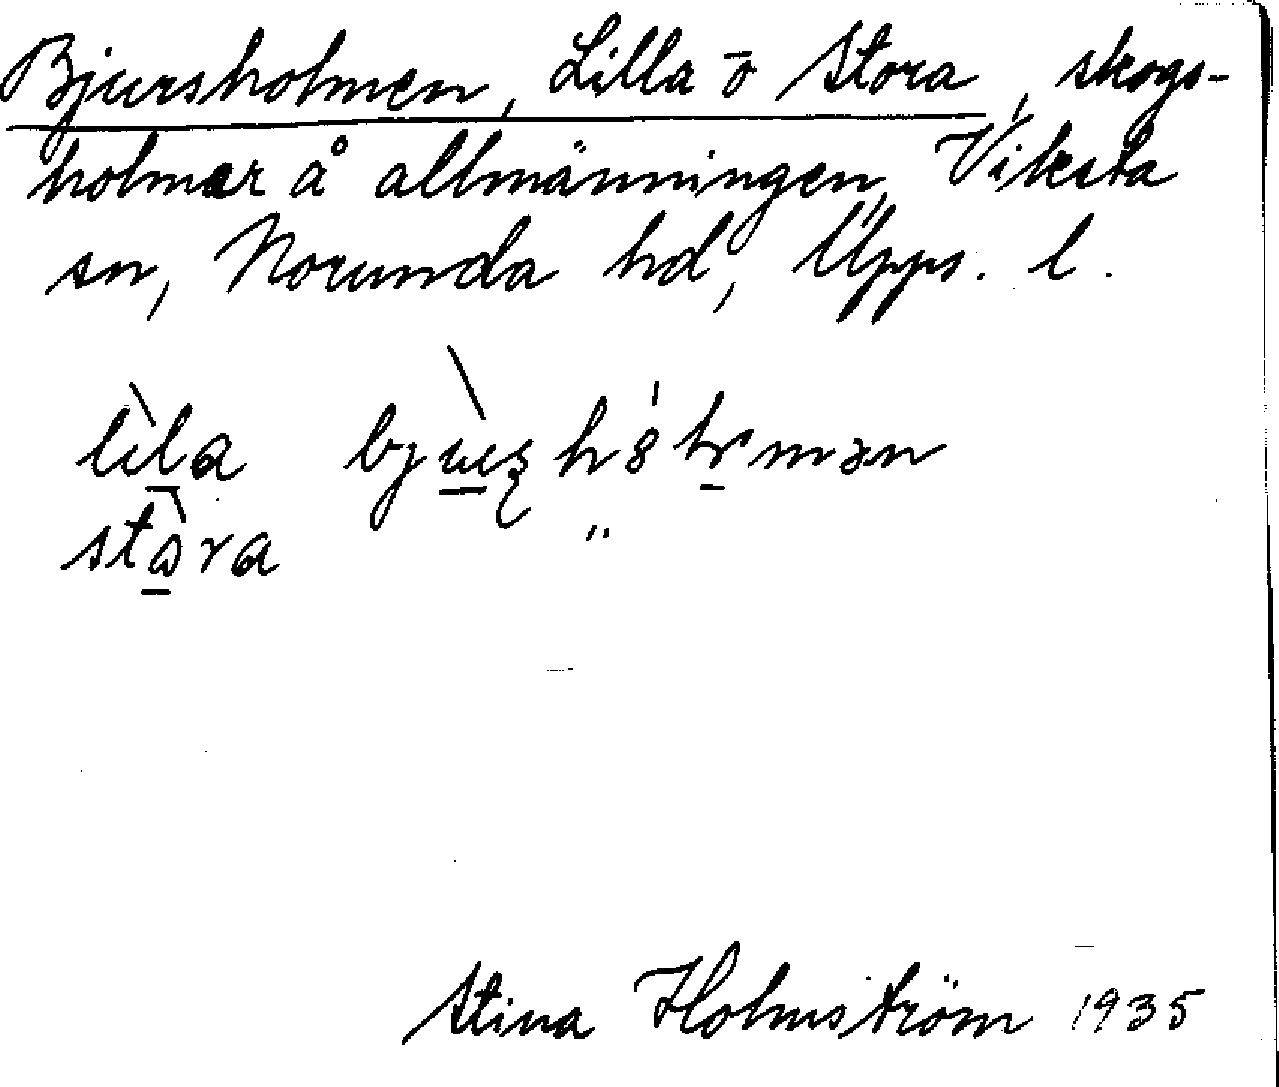 Bjursholmen, Lilla o Stora, skogs-
holmar å allmänningen, Viksta
sn, Norunda hd, Upps. l.
lila
stora "
Stina Holmström 1935